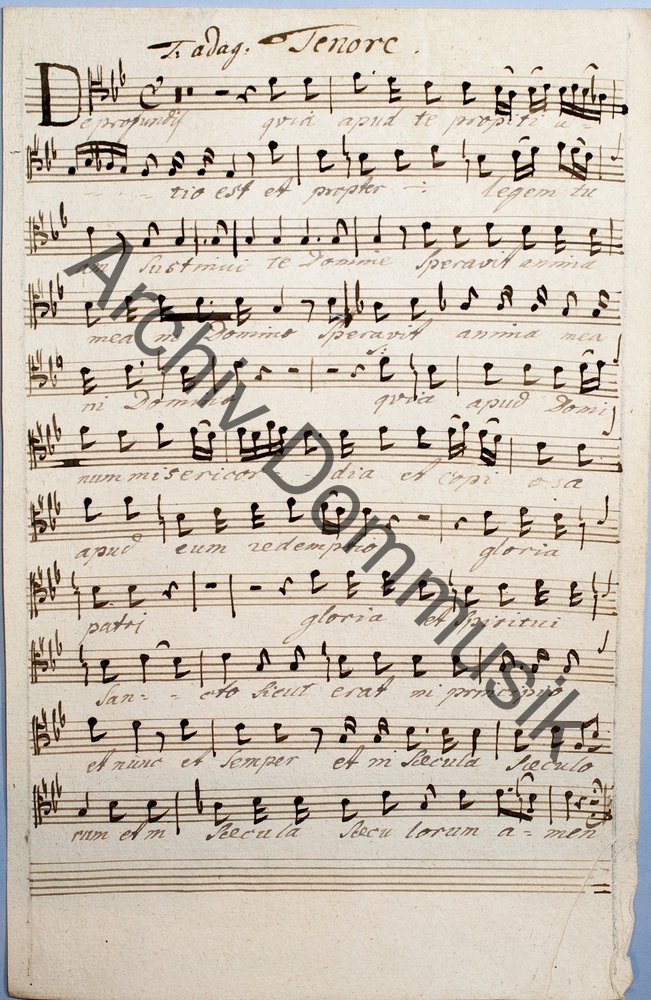 T: adag: Tenore.
De profundis quia apud te propiti a-
- - - tio est et propter -: legem tu
am Sustinui te Domine Speravit anima
mea in Domino Speravit anima mea
in Domino quia apud Domi
num misericor - dia et copi osa
apud eum redemptio gloria
patri gloria et Spiritui
San- - cto Sicut erat in principio
et nunc et Semper et in Sæcula Sæculo
rum et in Sæcula Sæcu lorum a- men
Archiv Dommusik